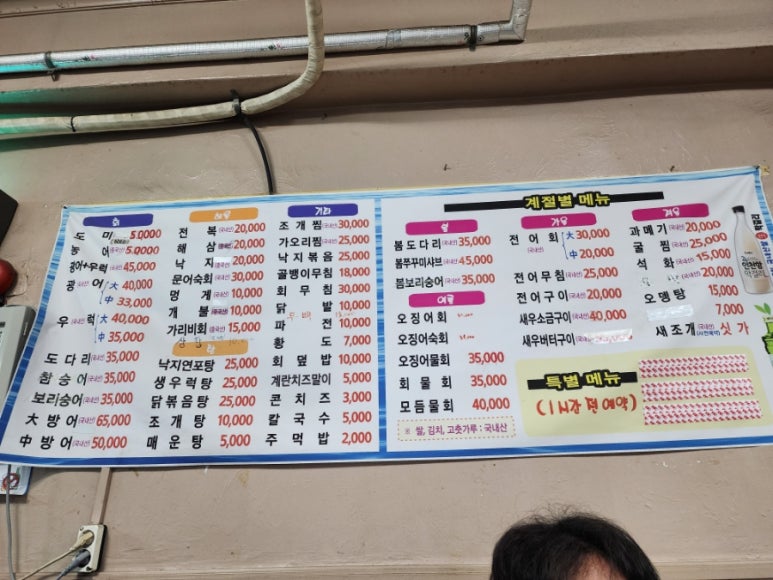 회
도 미 (국내산) 55,000
농 어 (국내산) 55,000
광어+우럭 45,000
광 어 (국내산) 大 40,000
中 33,000
우 럭 (국내산) 大 40,000
中 35,000
도 다 리 (국내산) 35,000
참 숭 어 (국내산) 35,000
보리숭어 (국내산) 35,000
大 방 어 (국내산) 65,000
中 방 어 (국내산) 50,000
해물
전 복 (국내산) 20,000
해 삼 (국내산) 20,000
낙 지 20,000
문어숙회 30,000
멍 게 (국내산) 10,000
개 불 10,000
가리비회 15,000
탕
낙지연포탕 25,000
생우럭탕 25,000
닭볶음탕 25,000
조 개 탕 10,000
매 운 탕 5,000
기타
조 개 찜 (국내산) 30,000
가오리찜 (국내산) 25,000
낙지볶음 25,000
골뱅이무침 18,000
회 무 침 30,000
닭 발 10,000
파 전
황 도 7,000
회 덮 밥 10,000
계란치즈말이 5,000
콘 치 즈 3,000
칼 국 수 5,000
주 먹 밥 2,000
계절별 메뉴
봄
봄도다리 (국내산) 35,000
봄쭈꾸미샤브 45,000
봄보리숭어 (국내산) 35,000
여름
오징어회
오징어숙회
오징어물회 35,000
회 물 회 35,000
모듬물회 40,000
※ 쌀, 김치, 고춧가루 : 국내산
가을
전 어 회 (국내산) 大 30,000
中 20,000
전어무침 (국내산) 25,000
전어구이 (국내산) 20,000
새우소금구이 40,000
새우버터구이
겨울
과메기 (국내산) 20,000
굴 찜 (국내산) 25,000
석 화 (국내산) 15,000
20,000
오 뎅 탕 15,000
7,000
새조개 싯가
특별 메뉴